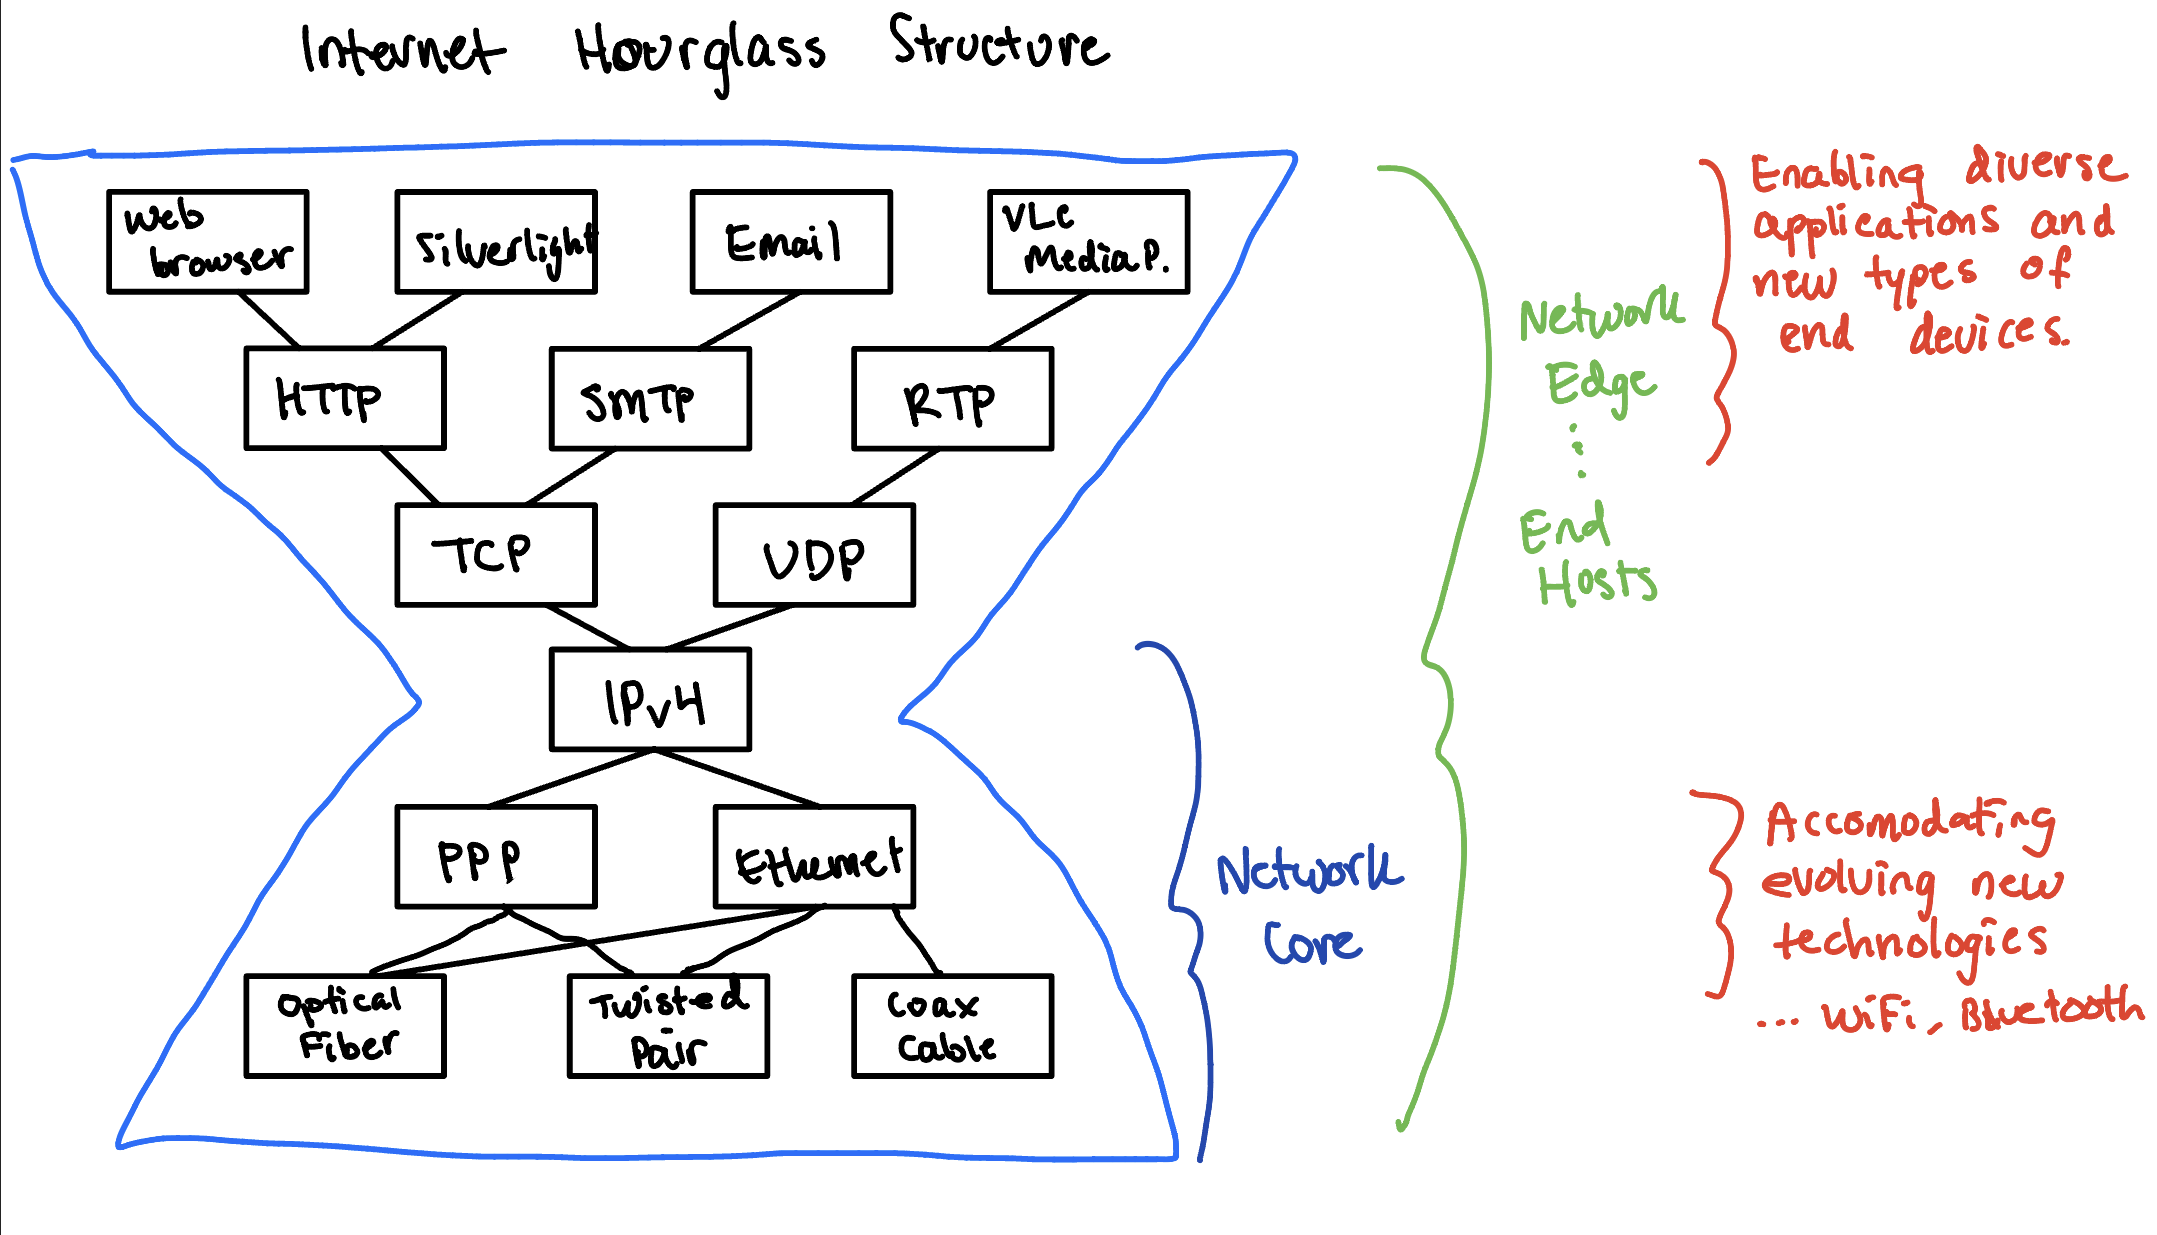 Internet Hourglass Structure
Web
browser
Silverlight
Email
VLC
Media P.
HTTP
SMTP
RTP
TCP
UDP
IPv4
PPP
Ethernet
Optical
Fiber
Twisted
Pair
Coax
Cable
Network
Core
Network
Edge
End
Hosts
Enabling diverse
applications and
new types of
end devices.
Accomodating
evolving new
technologies
... WiFi, Bluetooth